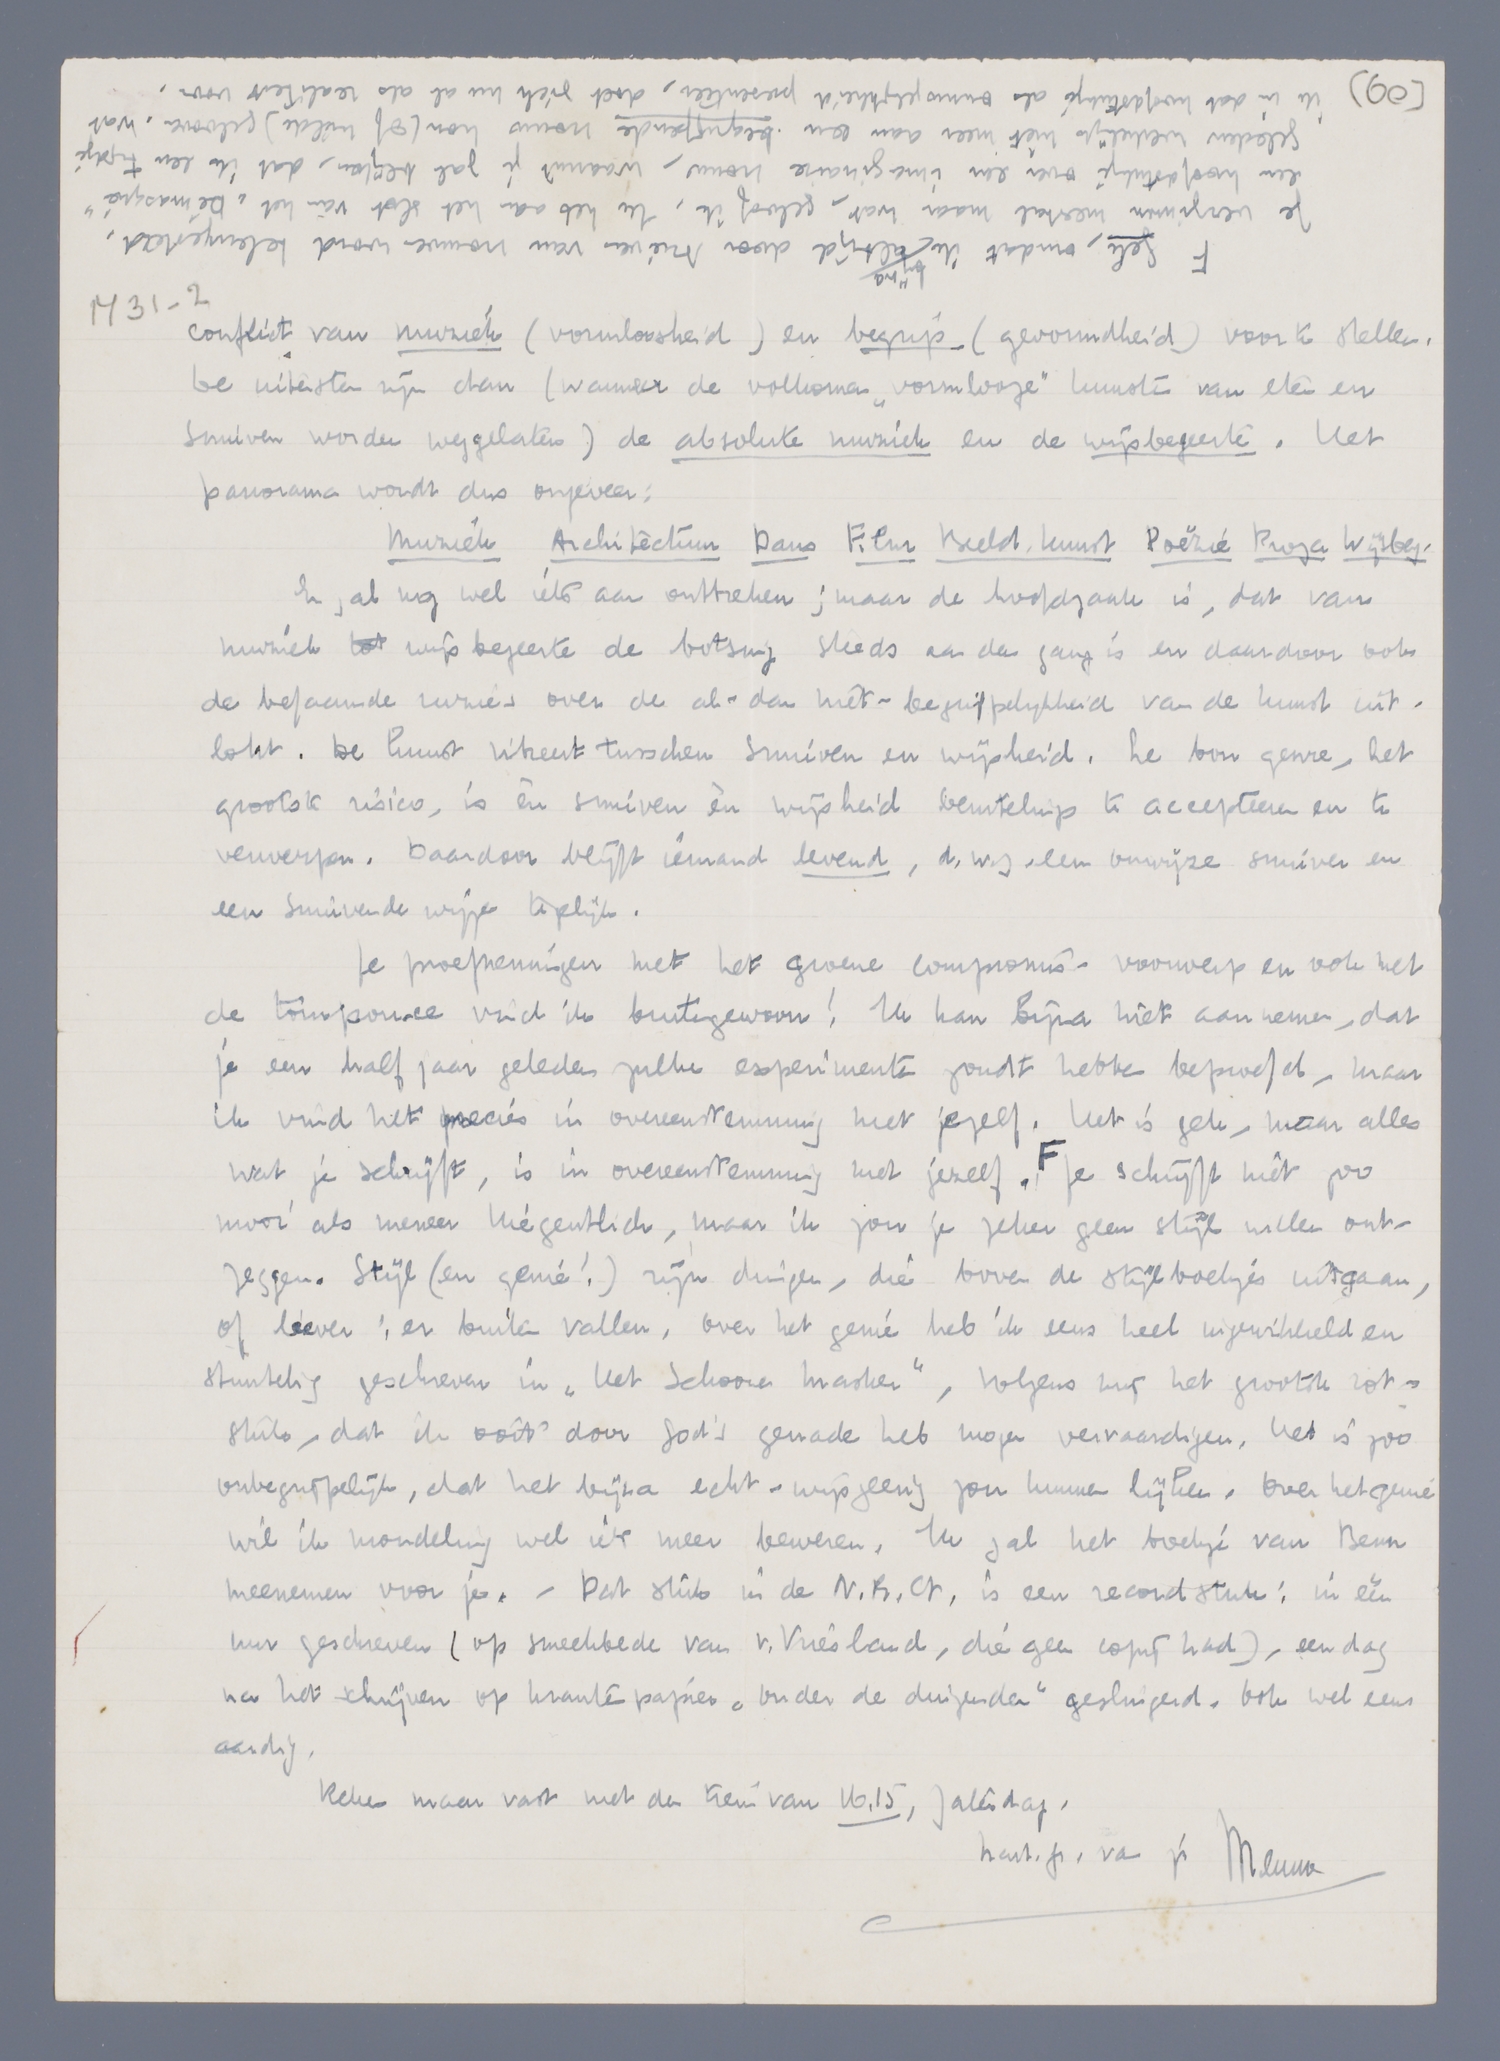 [60)
F gek, omdat ik bijna altijd door brieven van vrouwen word teleurgesteld.
Je verzinnen meestal maar wat, geloof ik. Ik heb aan het slot van het „Démasqué"
een hoofdstukje over een imaginaire vrouw, waaruit je zal blijken, dat ik een tijdje
geleden werkelijk niet meer aan een begrijpende vrouw kon (of wilde) gelooven. Wat
ik in dat hoofdstukje als onmogelijkheid presenteer, doet zich nu al als realiteit voor.
M 31-2
conflict van muziek (vormloosheid) en begrip (gevormdheid) voor te stellen.
De uitersten zijn dan (wanneer de volkomen „vormlooze" kunsten van eten en
snuiven worden weggelaten) de absolute muziek en de wijsbegeerte. Het
panorama wordt dus ongeveer:
Muziek Architectuur Dans Film Beeld. kunst Poëzie Proza Wijsbeg.
Er zal nog wel iets aan ontbreken; maar de hoofdzaak is, dat van
muziek tot wijsbegeerte de botsing steeds aan den gang is en daardoor ook
de befaamde ruzies over de al-dan niet-begrijpelijkheid van de kunst uit-
lokt. De kunst vibreert tusschen snuiven en wijsheid. Le bon genre, het
grootste risico, is èn snuiven èn wijsheid beurtelings te accepteeren en te
verwerpen. Daardoor blijft iemand levend, d.w.z. een onwijze snuiver en
een snuivende wijze tegelijk.
Je proefneemingen met het groene compromis-voorwerp en ook met
de tompouce vind ik buitengewoon! Ik kan bijna niet aannemen, dat
je een half jaar geleden zulke experimenten zoudt hebben beproefd, maar
ik vind het precies in overeenstemming met jezelf. Het is gek, maar alles
wat je schrijft, is in overeenstemming met jezelf. F Je schrijft niet zoo
mooi als meneer Hiégentlich, maar ik zou je zeker geen stijl willen ont-
zeggen. Stijl (en genie!) zijn dingen, die boven de stijlboekjes uitgaan,
of liever: er buiten vallen. Over het genie heb ik eens heel ingewikkeld en
stuntelig geschreven in „Het Schoone Masker", volgens mij het grootste rot-
stuk, dat ik ooit door God's genade heb mogen vervaardigen. Het is zoo
onbegrijpelijk, dat het bijna echt-wijsgeerig zou kunnen lijken. Over het genie
wil ik mondeling wel iets meer beweren. Ik zal het boekje van Benn
meenemen voor je. - Dat stuk in de N.R.Ct. is een recordstuk: in één
uur geschreven (op smeekbede van v. Vriesland, die geen copij had), een dag
na het schrijven op krantenpapier „onder de duizenden" geslingerd. Ook wel eens
aardig.
Reken maar vast met den trein van 16.15, Zaterdag.
hart. gr. van je Menno